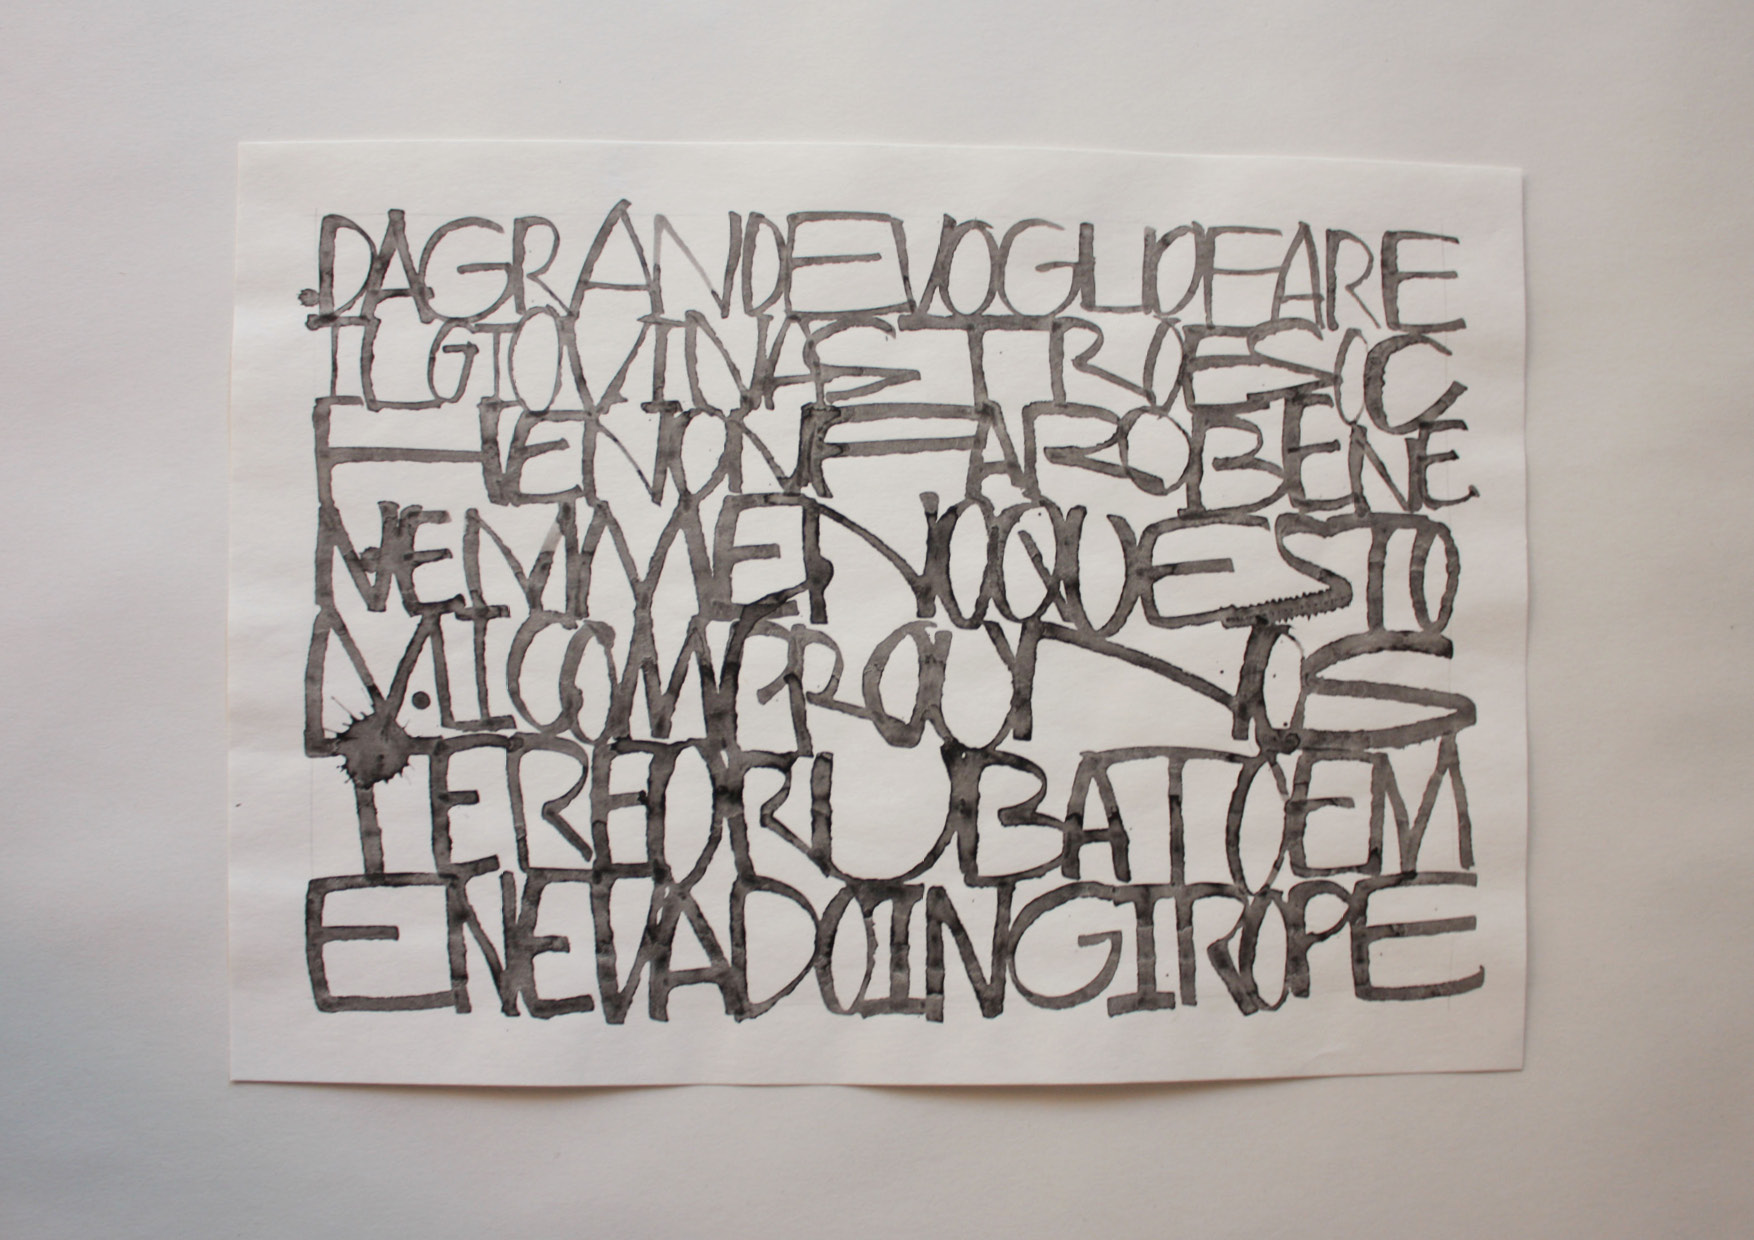 DAGRANDEVOGLIOFARE
ILGIOVINASTROESOC
HENONFAROBENE
NEMMENOQUESTO
MICOMPROUNOS
TEREORUBATOEM
ENEVADOINGIROPE